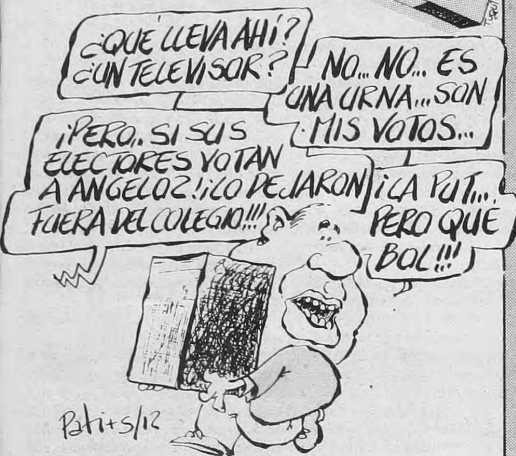 ¿QUÉ LLEVA AHÍ?
¿UN TELEVISOR?
NO... NO... ES
UNA URNA... SON
MIS VOTOS...
¡PERO.. SI SUS
ELECTORES VOTAN
A ANGELOZ! ¡LO DEJARON
FUERA DEL COLEGIO!!!
¡LA PUT...
PERO QUÉ
BOL!!!
Pati+s/12